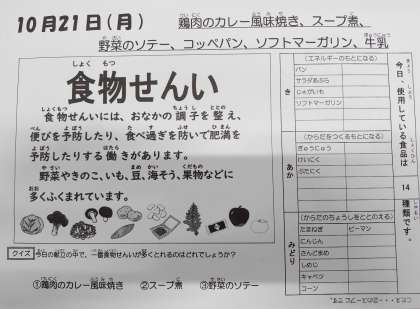 10月21日(月)
鶏肉のカレー風味焼き、スープ煮、
野菜のソテー、コッペパン、ソフトマーガリン、牛乳
食物せんい
食物せんいには、おなかの調子を整え、
便びを予防したり、食べ過ぎを防いで肥満を
予防したりする働きがあります。
野菜やきのこ、いも、豆、海そう、果物などに
多くふくまれています。
クイズ 今日の献立の中で、一番食物せんいが多くとれるのはどれでしょうか?
①鶏肉のカレー風味焼き ②スープ煮 ③野菜のソテー
き
(エネルギーのもとになる)
パン
サラダあぶら
じゃがいも
ソフトマーガリン
あか
(からだをつくるもとになる)
ぎゅうにゅう
けいにく
ぶたにく
みどり
(からだのちょうしをととのえる)
たまねぎ ピーマン
にんじん
さんどまめ
しめじ
キャベツ
コーン
今日、使用している食品は
14
種類です。